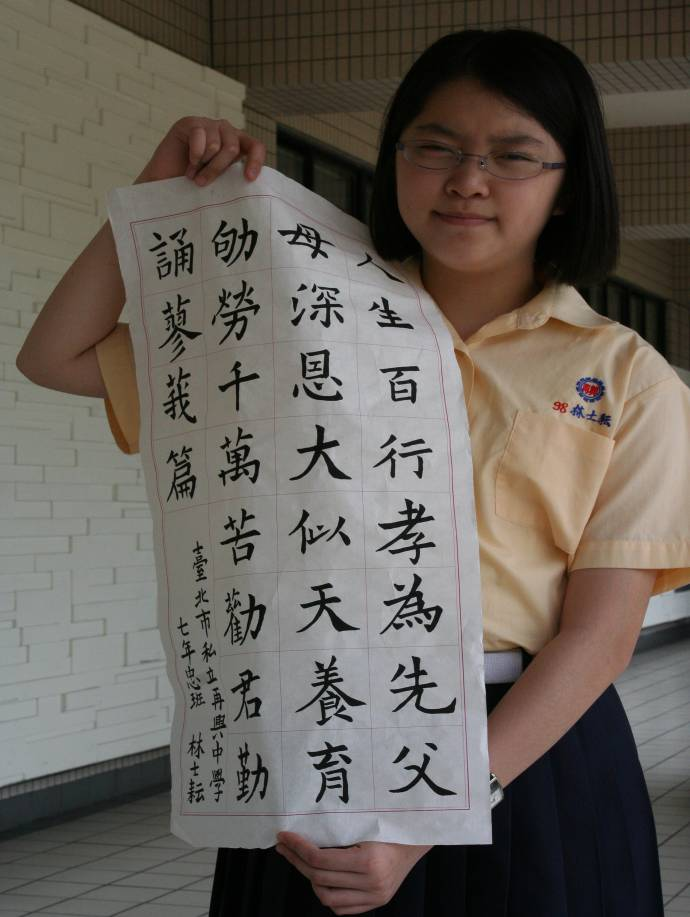 人生百行孝為先父
母深恩大似天養育
劬勞千萬苦勸君勤
誦蓼莪篇
臺北市私立再興中學
七年忠班 林士耘
98 林士耘